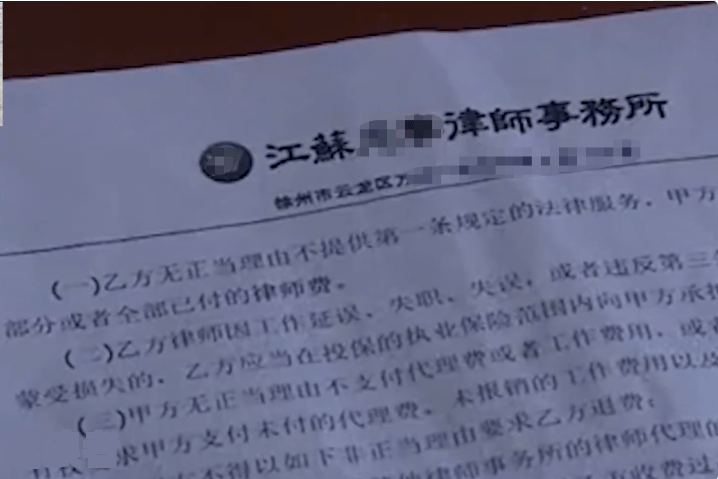 江蘇律師事務所
徐州市云龙区万
(一)乙方无正当理由不提供第一条规定的法律服务，甲方
部分或者全部已付的律师费。
(二)乙方律师因工作延误、失职、失误，或者违反第三
蒙受损失的，乙方应当在投保的执业保险范围内向甲方承担
(三)甲方无正当理由不支付代理费或者工作费用，或
求甲方支付未付的代理费，未报销的工作费用以及
不得以如下非正当理由要求乙方退费：
律师事务所的律师代理的
收费过